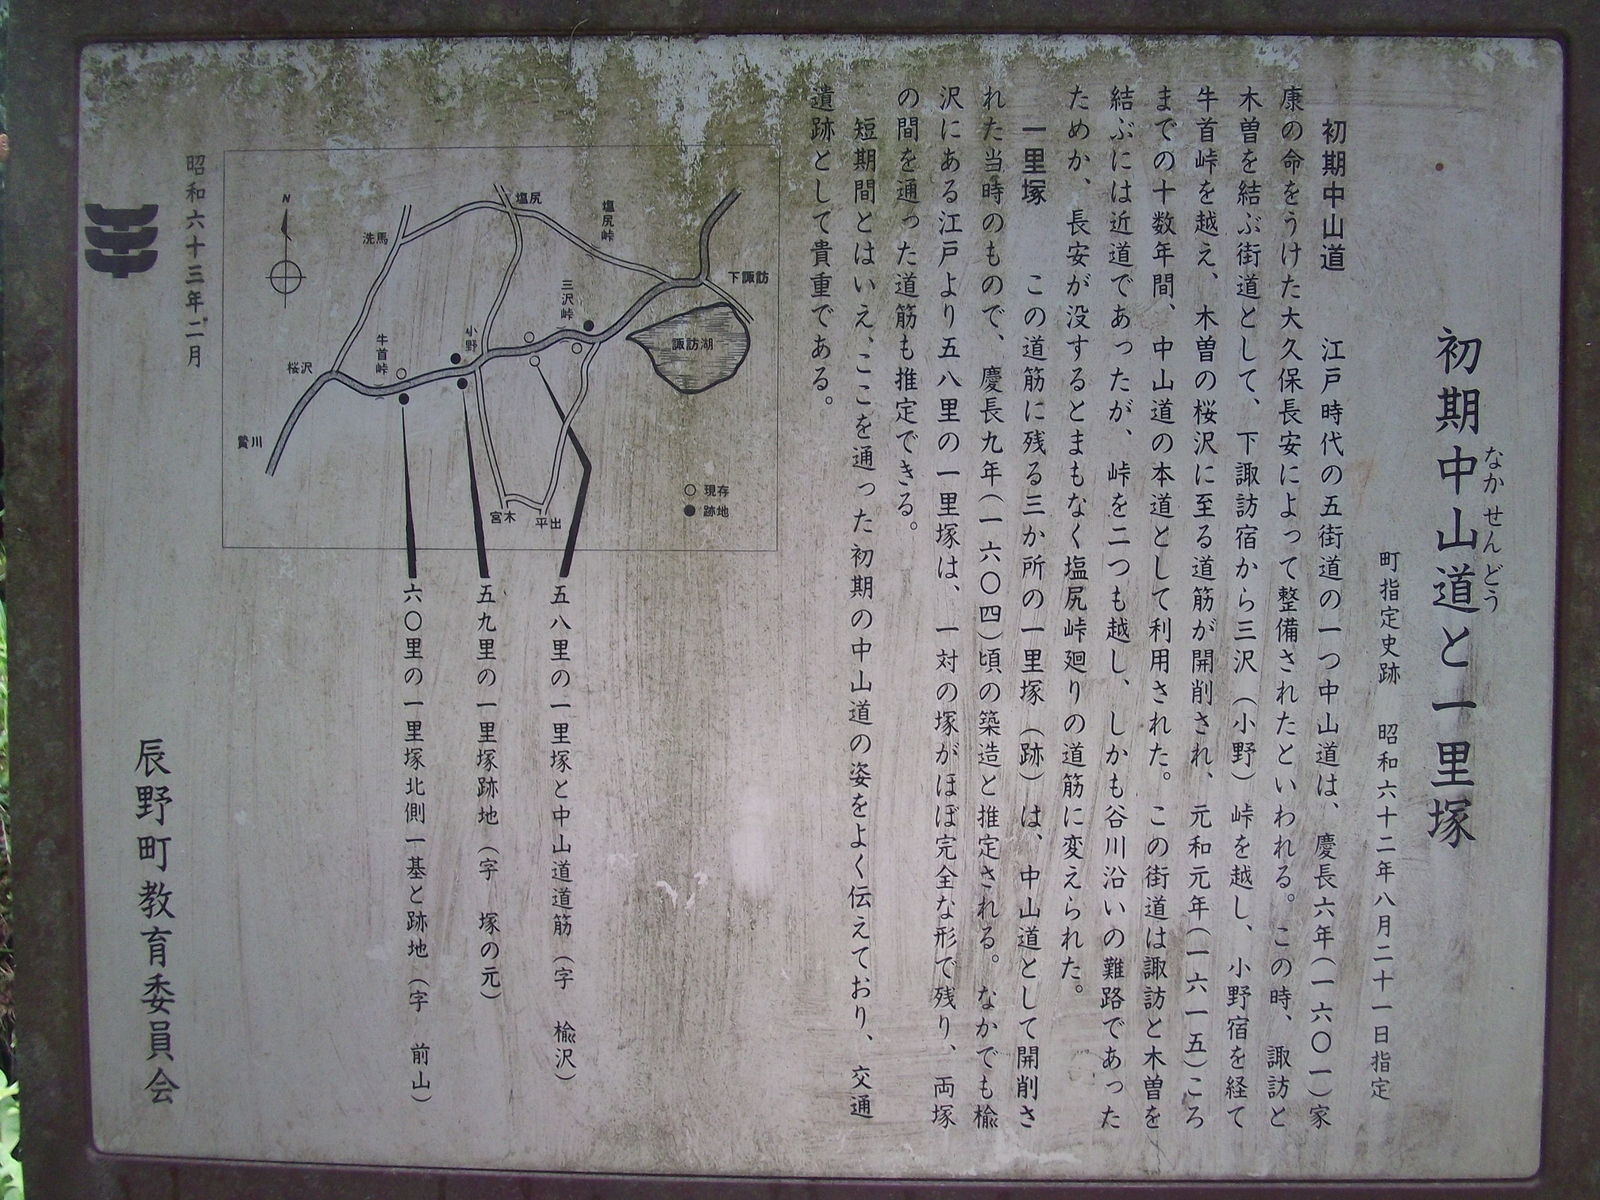 初期中山道と一里塚
なかせんどう
町指定史跡　昭和六十二年八月二十一日指定
初期中山道　江戸時代の五街道の一つ中山道は、慶長六年(一六〇一)家
康の命をうけた大久保長安によって整備されたといわれる。この時、諏訪と
木曽を結ぶ街道として、下諏訪宿から三沢(小野)峠を越し、小野宿を経て
牛首峠を越え、木曽の桜沢に至る道筋が開削され、元和元年(一六一五)ころ
までの十数年間、中山道の本道として利用された。この街道は諏訪と木曽を
結ぶには近道であったが、峠を二つも越し、しかも谷川沿いの難路であった
ためか、長安が没するとまもなく塩尻峠廻りの道筋に変えられた。
一里塚　この道筋に残る三か所の一里塚(跡)は、中山道として開削さ
れた当時のもので、慶長九年(一六〇四)頃の築造と推定される。なかでも楡
沢にある江戸より五八里の一里塚は、一対の塚がほぼ完全な形で残り、両塚
の間を通った道筋も推定できる。
短期間とはいえ、ここを通った初期の中山道の姿をよく伝えており、交通
遺跡として貴重である。
下諏訪
諏訪湖
塩尻峠
塩尻
三沢峠
小野
洗馬
牛首峠
桜沢
贄川
宮木
平出
N
○現存
●跡地
五八里の一里塚と中山道道筋(字　楡沢)
五九里の一里塚跡地(字　塚の元)
六〇里の一里塚北側一基と跡地(字　前山)
昭和六十三年二月
辰野町教育委員会